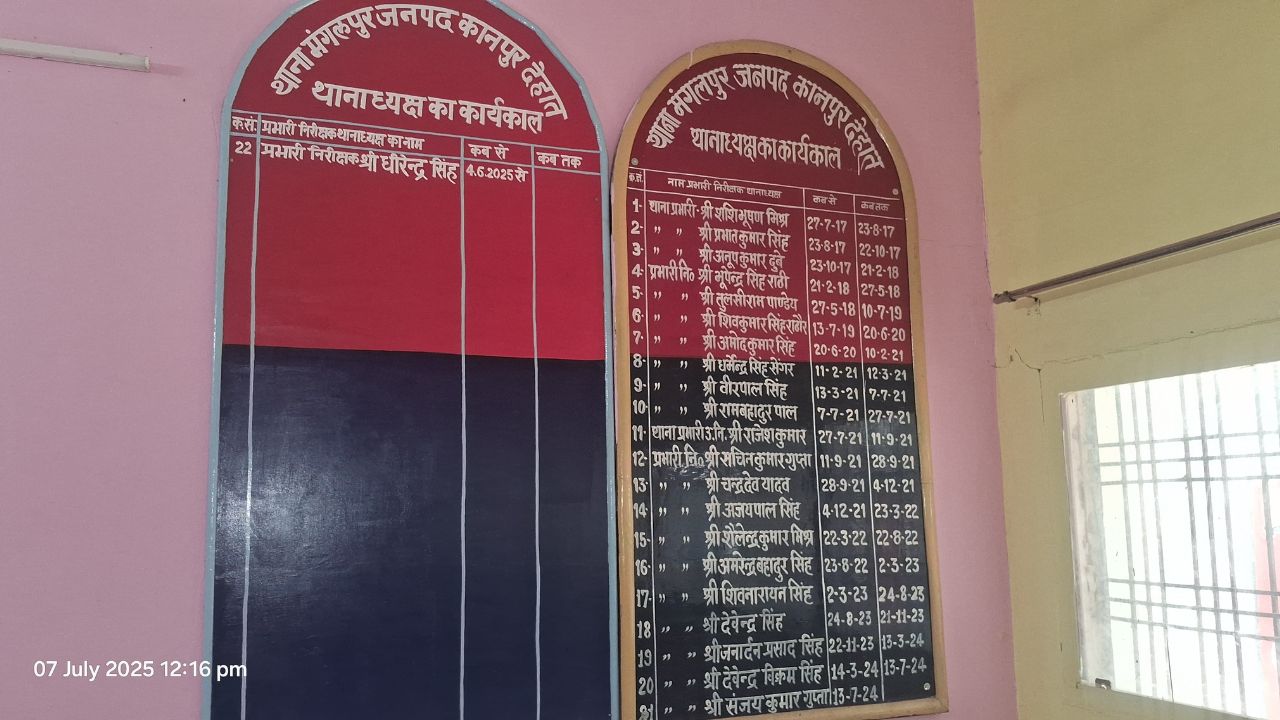 थाना मंगलपुर जनपद कानपुर देहात
थानाध्यक्ष का कार्यकाल
क.सं. प्रभारी निरीक्षक थानाध्यक्ष का नाम कब से कब तक
22 प्रभारी निरीक्षक श्री धीरेन्द्र सिंह 4.6.2025 से
थाना मंगलपुर जनपद कानपुर देहात
थानाध्यक्ष का कार्यकाल
क.सं. नाम प्रभारी निरीक्षक थानाध्यक्ष कब से कब तक
1- थाना प्रभारी- श्री शशिभूषण मिश्र 27-7-17 23-8-17
2- " " श्री प्रभात कुमार सिंह 23-8-17 22-10-17
3- " " श्री अनूप कुमार दुबे 23-10-17 21-2-18
4- प्रभारी नि० श्री भूपेन्द्र सिंह राठी 21-2-18 27-5-18
5- " " श्री तुलसीराम पाण्डेय 27-5-18 10-7-19
6- " " श्री शिवकुमार सिंह राठौर 13-7-19 20-6-20
7- " " श्री अमोद कुमार सिंह 20-6-20 10-2-21
8- " " श्री धर्मेन्द्र सिंह सेंगर 11-2-21 12-3-21
9- " " श्री वीरपाल सिंह 13-3-21 7-7-21
10- " " श्री रामबहादुर पाल 7-7-21 27-7-21
11- थाना प्रभारी उ.नि. श्री राजेश कुमार 27-7-21 11-9-21
12- प्रभारी नि. श्री सचिन कुमार गुप्ता 11-9-21 28-9-21
13- " " श्री चन्द्रदेव यादव 28-9-21 4-12-21
14 " " श्री अजयपाल सिंह 4-12-21 23-3-22
15- " " श्री शैलेन्द्र कुमार मिश्र 22-3-22 22-8-22
16- " " श्री अमरेन्द्र बहादुर सिंह 23-8-22 2-3-23
17- " " श्री शिवनारायन सिंह 2-3-23 24-8-23
18 " " श्री देवेन्द्र सिंह 24-8-23 21-11-23
19 " " श्री जनार्दन प्रसाद सिंह 22-11-23 13-3-24
20 " " श्री देवेन्द्र विक्रम सिंह 14-3-24 13-7-24
21 " " श्री संजय कुमार गुप्ता 13-7-24
07 July 2025 12:16 pm